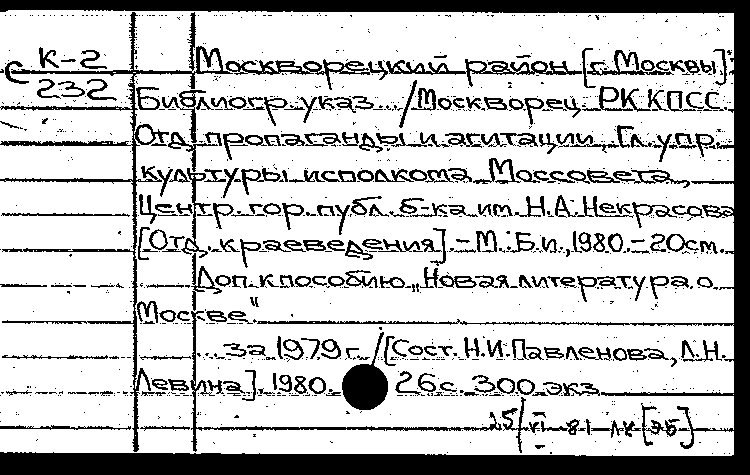 С К-2
232
Москворецкий район [г. Москвы]:
Библиогр. указ... /Москворец. РК КПСС.
Отд. пропаганды и агитации, Гл. упр.
культуры исполкома Моссовета,
Центр. гор. публ. б-ка им. Н.А. Некрасова
[Отд. краеведения]. - М.: Б.и., 1980. - 20см.
Доп. к пособию „Новая литература о
Москве"
... за 1979 г. /[Сост. Н.И. Павленова, Л.Н.
Левина]. 1980. 26с. 300 экз.
25/VI-81